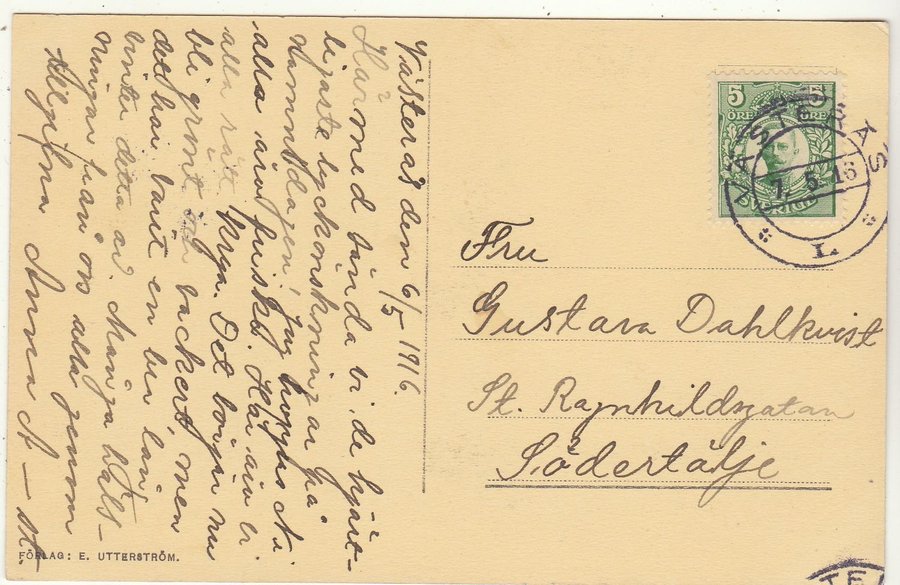 Västerås den 6/5 1916.
Härmed sända vi de hjärt-
ligaste lyckönskningar på
Namnsdagen, jag hoppas Ni
alla äro friskt. Här äro vi
alla rätt krya. Det börjar nu
bli grönt och vackert, men
det har varit en lång
vinter detta år Många häls-
ningar från oss alla genom
Anna
Fru
Gustava Dahlkvist
St. Ragnhildsgatan
Södertälje
5 5
ÖRE ÖRE
SVERIGE
VÄSTERÅS
7. 5. 16
* L *
FÖRLAG: E. UTTERSTRÖM.